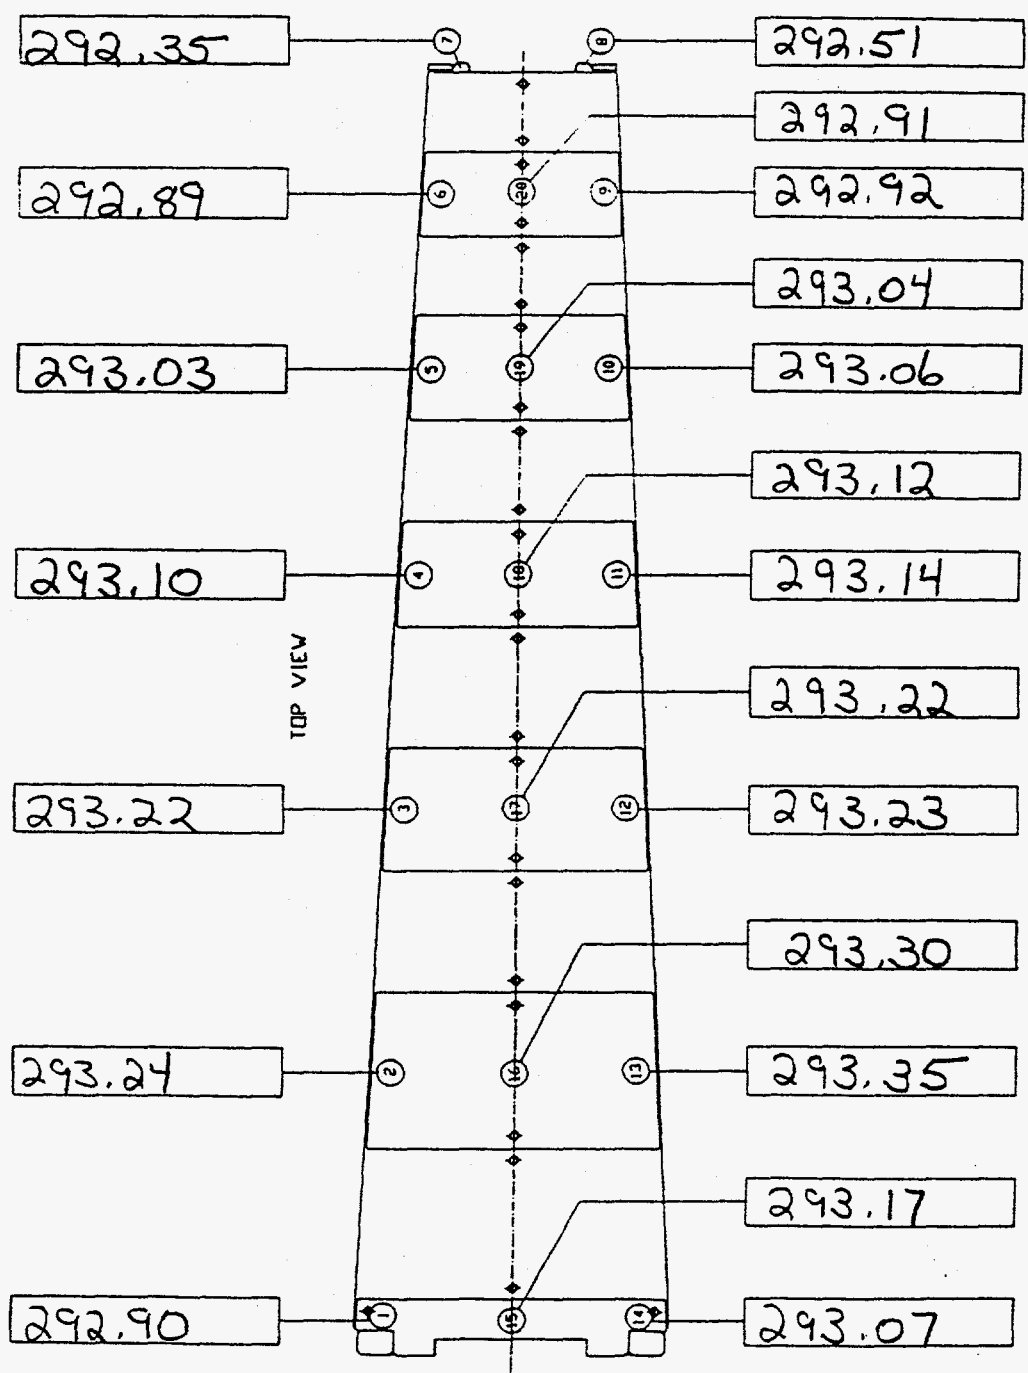 292.35
7
8
292.51
292.91
292.89
6
20
9
292.92
293.04
293.03
5
19
10
293.06
293.12
293.10
4
18
11
293.14
TOP VIEW
293.22
293.22
3
17
12
293.23
293.30
293.24
2
16
13
293.35
293.17
292.90
1
15
14
293.07